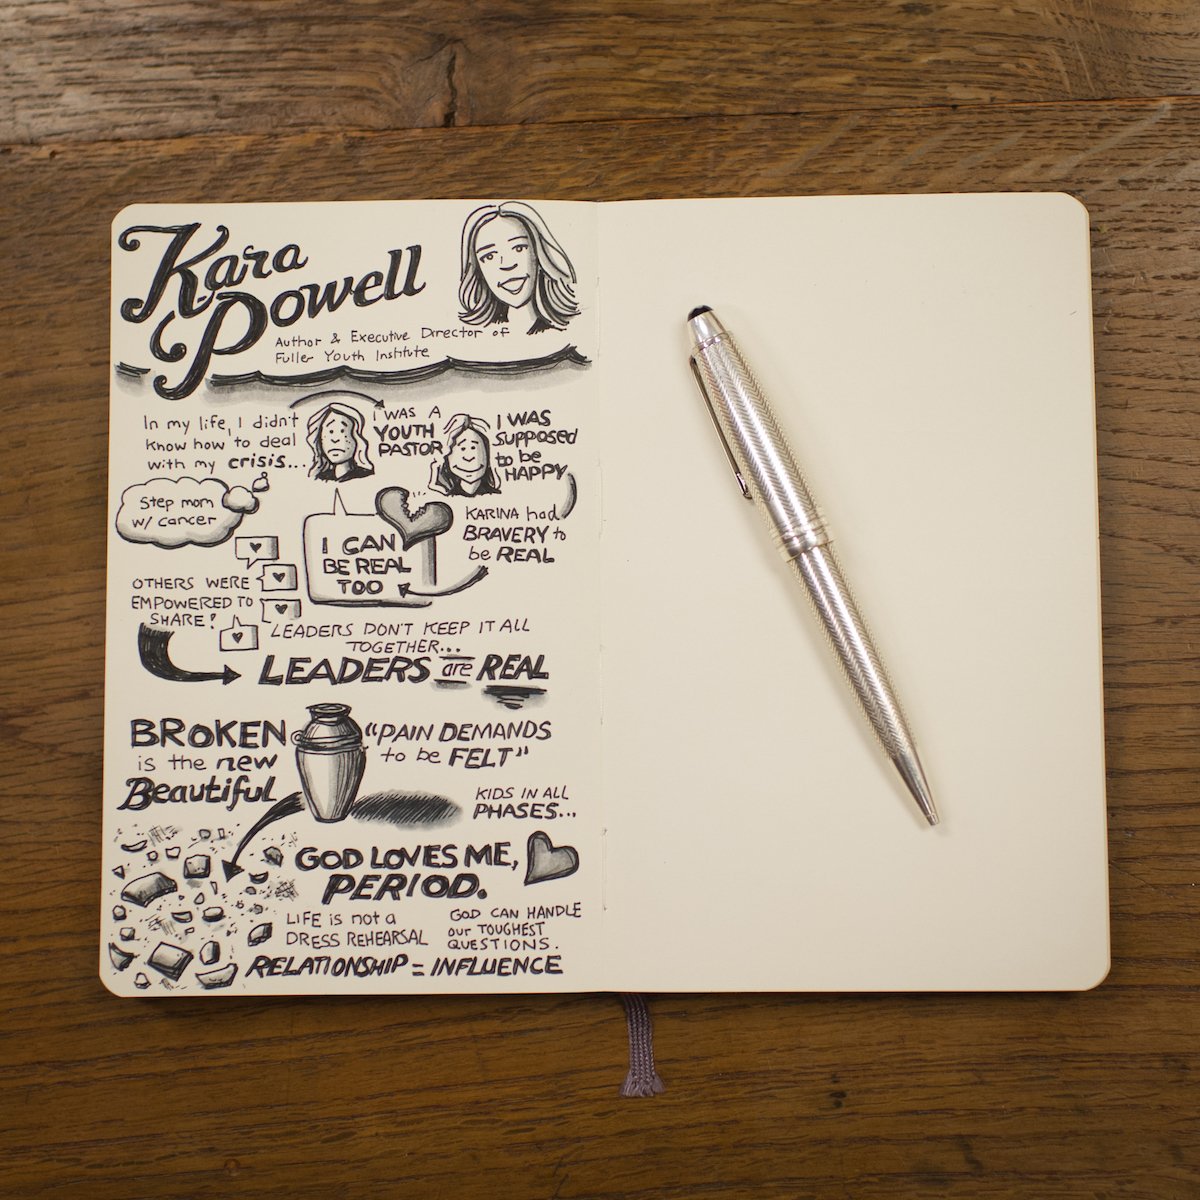 Kara
Powell
Author & Executive Director of
Fuller Youth Institute
In my life, I didn't
know how to deal
with my crisis...
Step mom
w/ cancer
I WAS A
YOUTH
PASTOR
I WAS
supposed
to be
HAPPY
KARINA had
BRAVERY to
be REAL
I CAN
BE REAL
TOO
OTHERS WERE
EMPOWERED TO
SHARE!
LEADERS DON'T KEEP IT ALL
TOGETHER...
LEADERS are REAL
BROKEN
is the new
Beautiful
"PAIN DEMANDS
to be FELT"
KIDS IN ALL
PHASES...
GOD LOVES ME,
PERIOD.
LIFE is not a
DRESS REHEARSAL
GOD CAN HANDLE
our TOUGHEST
QUESTIONS.
RELATIONSHIP = INFLUENCE